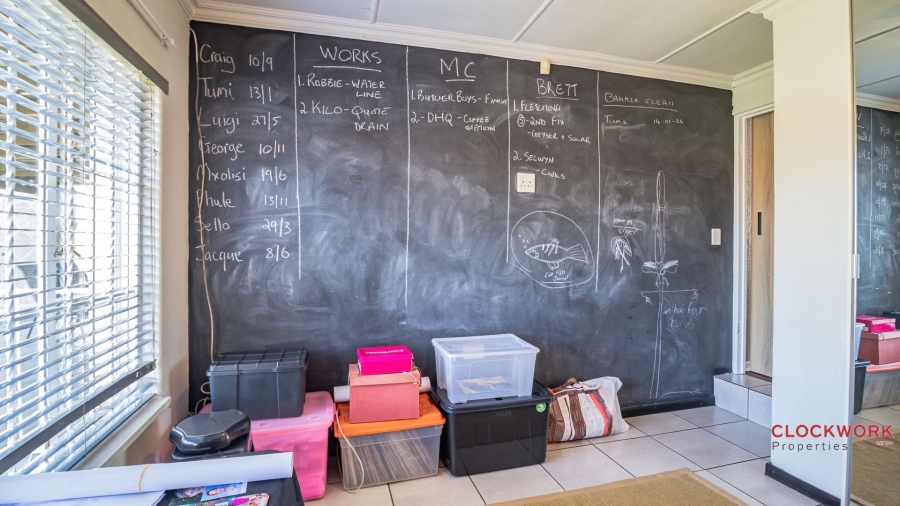 Craig 10/9
Tumi 13/1
Luigi 27/5
George 10/11
Mxolisi 19/6
Phule 13/11
Sello 29/3
Jacque 8/6
WORKS
1. ROBBIE - WATER
LINE
2. KILO - QUOTE
DRAIN
MC
1. BUTCHER BOYS - FINISH
2. - DHQ - COFFEE
STATION
BRETT
1. FLEMMING
2ND FIX
- GEYSER + SOLAR
2. SELWYN
- CIVILS
CLOCKWORK
Properties